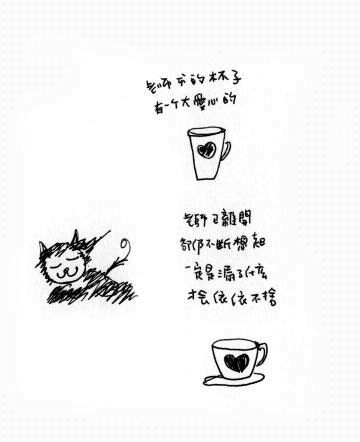 老師的杯子
有一个大愛心的
老師已離開
卻仍不斷想起
一定是漏了什麼
才会依依不捨